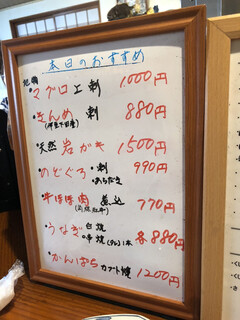 本日のおすすめ
・マグロ上刺 1,000円
・きんめ 刺 880円
(伊豆下田産)
・天然岩がき 1500円
・のどぐろ・刺 990円
・あらだき
・牛ほほ肉 煮込 770円
・うなぎ・白焼
・串焼(タレ)1本 各880円
・かんぱち カブト焼 1200円